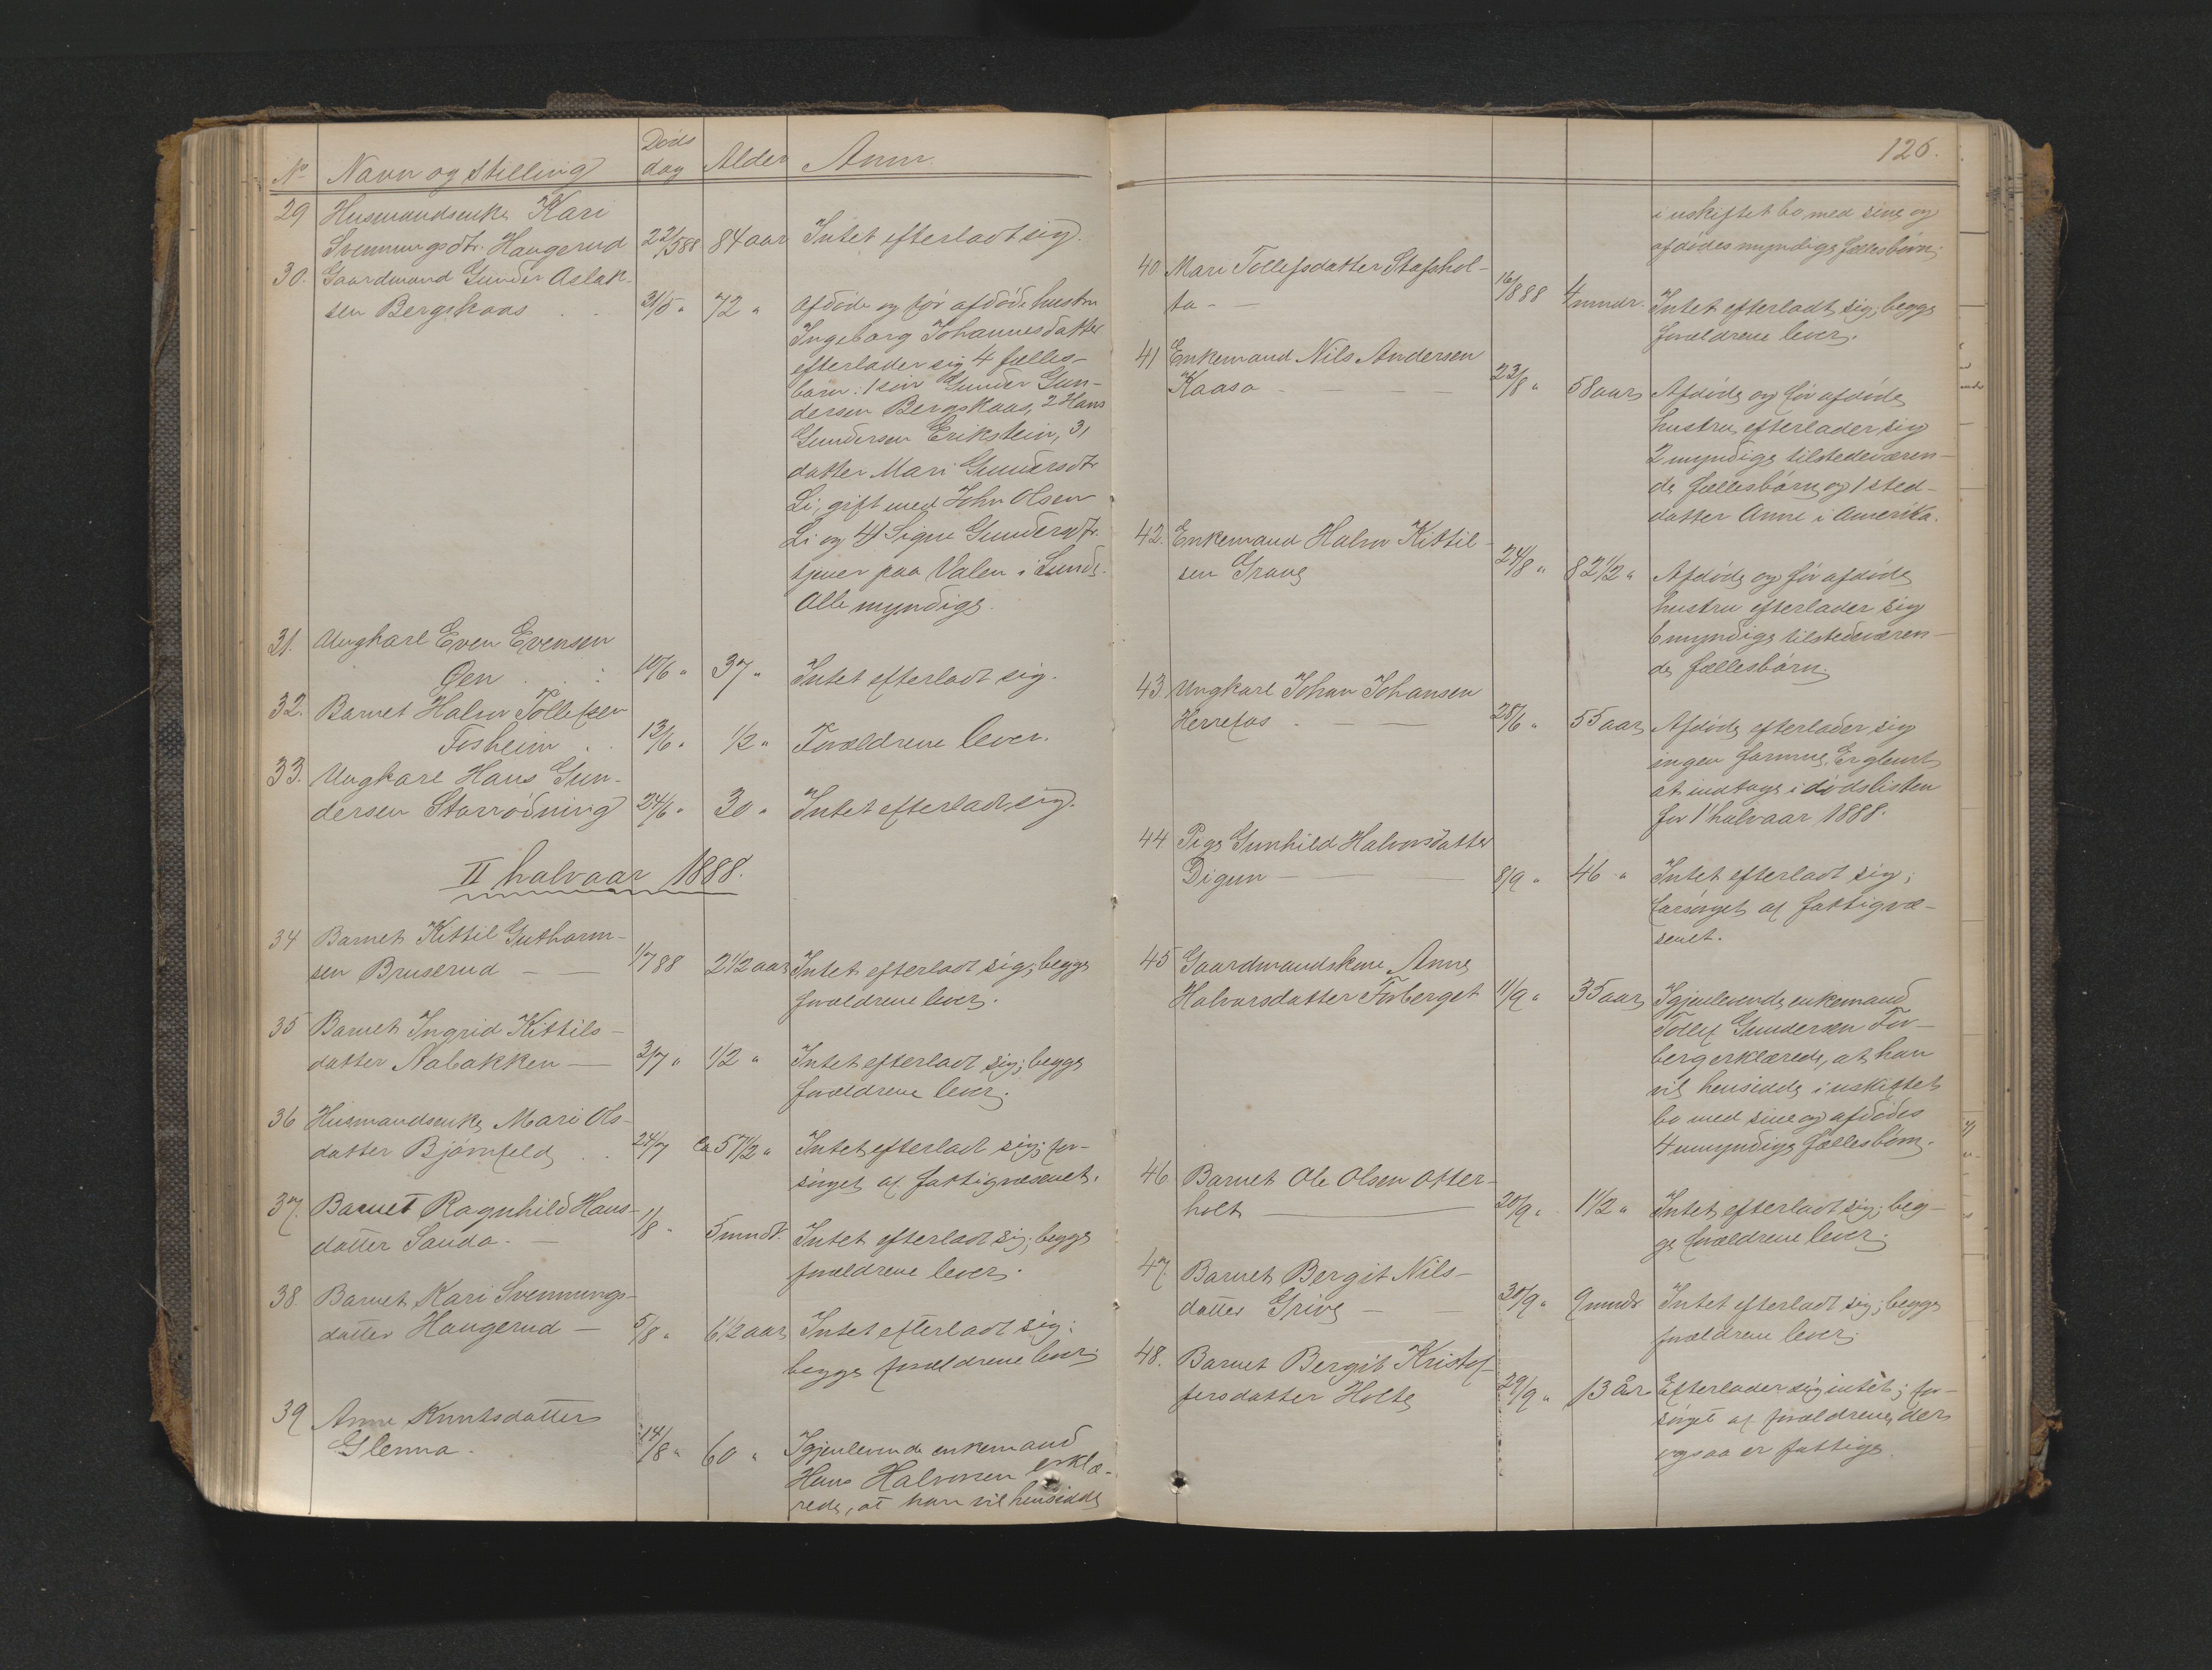 No Navn og Stilling Døds dag Alder Anm.
29 Husmandsenke Kari
Svennungsdtr. Haugerud 22/5 88 84 aar Intet efterladt sig.
30. Gaardmand Gunder Aslak-
sen Bergskaas . . 31/5 " 72 " Afdøde og før afdøde hustru
Ingeborg Johannesdatter
efterlader sig 4 fælles-
børn: 1 søn Gunder Gun-
dersen Bergskaas, 2 Hans
Gundersen Erikstein, 3,
datter Mari Gundersdtr
Li, gift med John Olsen
Li og 4) Signe Gundersdtr.
tjener paa Valen i Lunde.
Alle myndige.
31. Ungkarl Even Evensen
Øen . . 10/6 " 37 " Intet efterladt sig.
32. Barnet Halvor Tollefsen
Fosheim . . 13/6 " 1/2 " Forældrene lever.
33. Ungkarl Hans Gun-
dersen Storrødning 24/6 " 30 " Intet efterladt sig.
II halvaar 1888.
34 Barnet Kittil Guthorm-
sen Bruserud — — 1/7 88 2 1/2 aar Intet efterladt sig; begge
forældrene lever.
35 Barnet Ingrid Kittils-
datter Nabakken — 3/7 " 1/2 " Intet efterladt sig; begge
forældrene lever.
36 Husmandsenke Mari Ols-
datter Bjørnfeld . . 24/7 ca 57 1/2 " Intet efterladt sig; for-
sørget af fattigvæsenet.
37. Barnet Ragnhild Hans-
datter Sauda. — 1/8 " 5 mndr. Intet efterladt sig; begge
forældrene lever.
38. Barnet Kari Svennungs-
datter Haugerud — 5/8 " 6 1/2 aar Intet efterladt sig;
begge forældrene lever.
39 Anne Knutsdatter
Glenna. 14/8 " 60 " Igjenlevende enkemand
Hans Halvorsen erklæ-
rede, at han vil hensidde
126.
i uskiftet bo med sine og
afdødes myndige fællesbørn.
40. Mari Tollefsdatter Stafshol-
ta — 16/8 88 4 mndr. Intet efterladt sig; begge
forældrene lever.
41 Enkemand Nils Andersen
Kaasa — — — 23/8 " 58 aar Afdøde og før afdøde
hustru efterlader sig
2 myndige tilstedeværen-
de fællesbørn og 1 sted-
datter Anne i Amerika.
42. Enkemand Halvor Kittil-
sen Grave 24/8 " 82 1/2 " Afdøde og før afdøde
hustru efterlader sig
6 myndige tilstedeværen-
de fællesbørn.
43. Ungkarl Johan Johansen
Herrefos . — — 28/6 " 55 aar Afdøde efterlader sig
ingen formue. Er glemt
at indtage i dødslisten
for 1' halvaar 1888.
44 Pige Gunhild Halvorsdatter
— — 8/9 " 46 " Intet efterladt sig;
forsørget af fattigvæ-
senet.
45 Gaardmandskone Anne
Halvorsdatter Forberget 11/9 " 35 aar Igjenlevende enkemand
Tollef Gundersen For-
berg erklærede, at han
vil hensidde i uskiftet
bo med sine og afdødes
4 umyndige fællesbørn.
46 Barnet Ole Olsen Otter-
holt — 20/9 " 1 1/2 " Intet efterladt sig; beg-
ge forældrene lever.
47. Barnet Bergit Nils-
datter Grive — — 30/9 " 9 mndr Intet efterladt sig; begge
forældrene lever.
48. Barnet Bergit Kristof-
fersdatter Holte 29/9 " 13 år Efterlader sig intet; for-
sørget af forældrene, der
ogsaa er fattige.